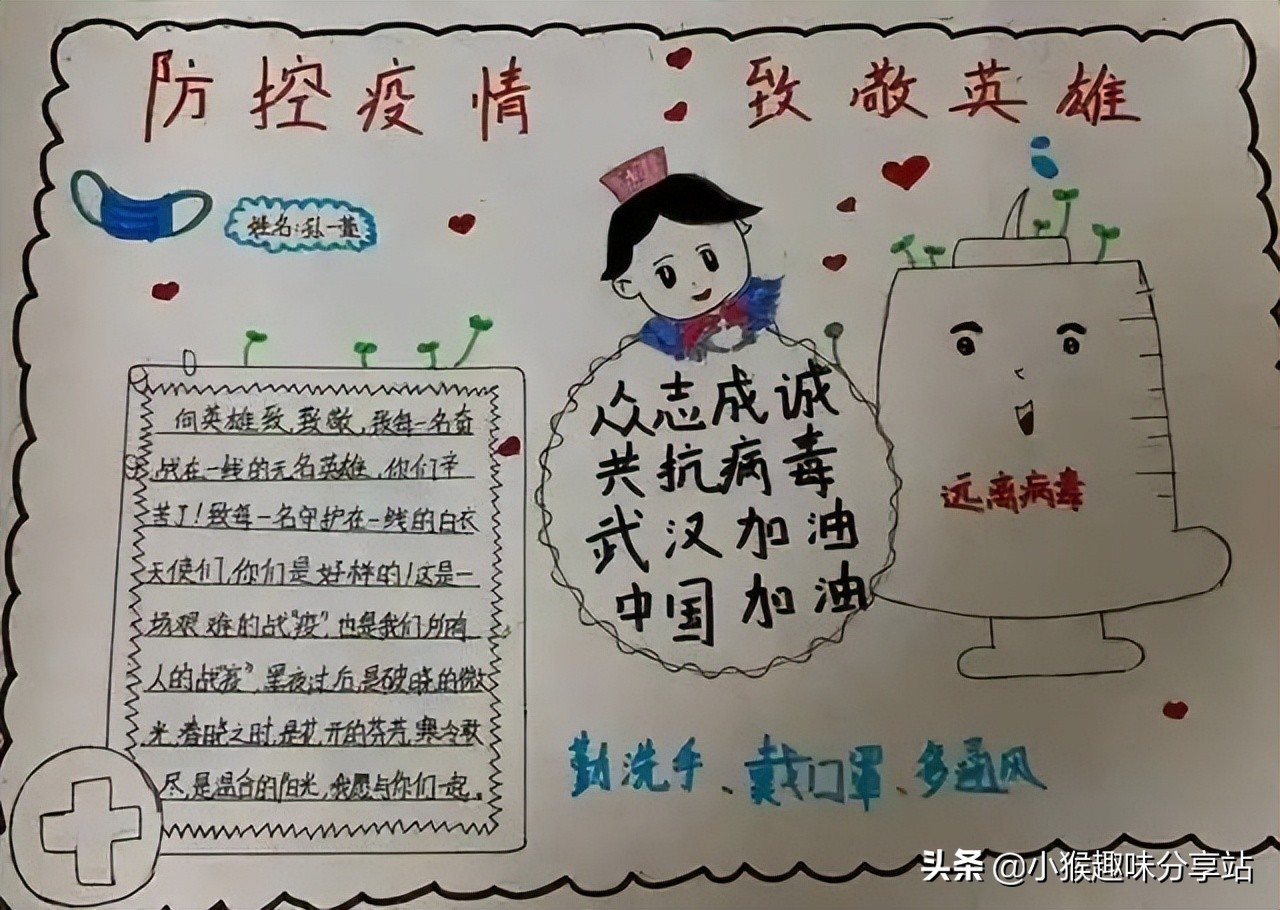 防控疫情 致敬英雄
姓名:孙一萱
向英雄致,致敬,致每一名奋
战在一线的无名英雄,你们辛
苦了!致每一名守护在一线的白衣
天使们,你们是好样的!这是一
场艰难的战"疫",也是我们所有
人的战"疫",黑夜过后,是破晓的微
光,春晓之时,是花开的芬芳,寒冷散
尽,是温合的阳光,我愿与你们一起。
众志成诚
共抗病毒
武汉加油
中国加油
远离病毒
勤洗手、戴口罩、多通风
头条 @小猴趣味分享站